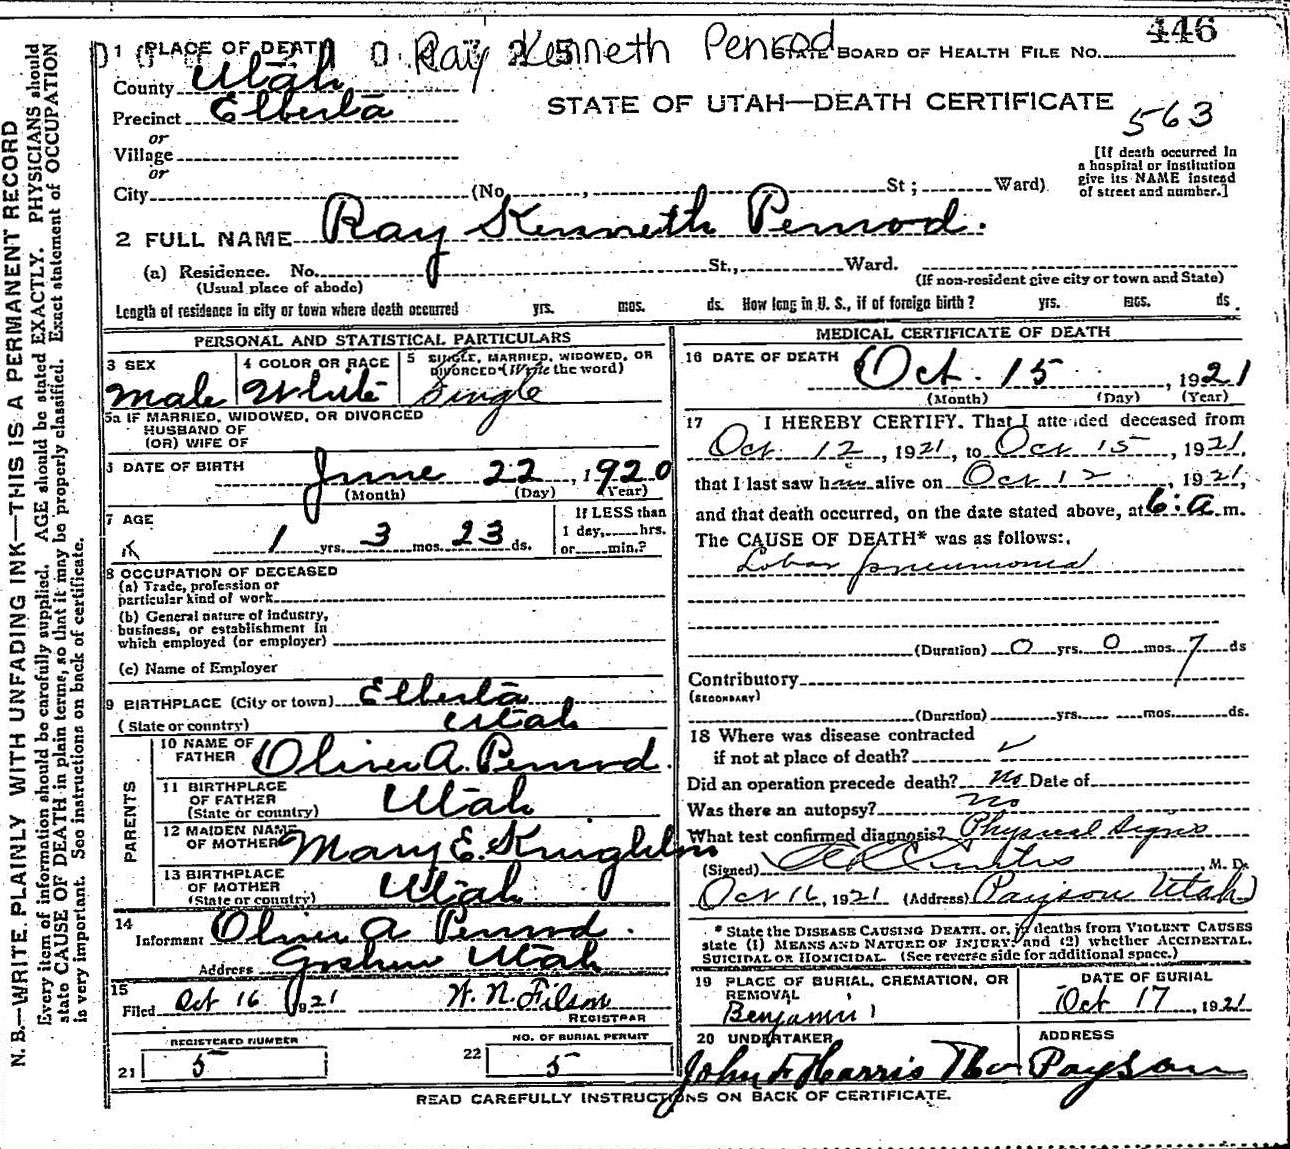 446
Ray Kenneth Penrod
1 PLACE OF DEATH
STATE BOARD OF HEALTH FILE No.
County Utah
STATE OF UTAH—DEATH CERTIFICATE
Precinct Elberta
563
or
Village
or
City (No. , St; Ward)
[If death occurred in a hospital or institution give its NAME instead of street and number.]
2 FULL NAME Ray Kenneth Penrod.
(a) Residence. No. St., Ward.
(Usual place of abode) (If non-resident give city or town and State)
Length of residence in city or town where death occurred yrs. mos. ds. How long in U. S., if of foreign birth? yrs. mos. ds.
PERSONAL AND STATISTICAL PARTICULARS
3 SEX Male
4 COLOR OR RACE White
5 SINGLE, MARRIED, WIDOWED, OR DIVORCED (Write the word) Single
5a IF MARRIED, WIDOWED, OR DIVORCED
HUSBAND OF
(OR) WIFE OF
DATE OF BIRTH June 22, 1920
(Month) (Day) (Year)
7 AGE
1 yrs. 3 mos. 23 ds.
If LESS than
1 day, hrs.
or min.?
8 OCCUPATION OF DECEASED
(a) Trade, profession or
particular kind of work
(b) General nature of industry,
business, or establishment in
which employed (or employer)
(c) Name of Employer
9 BIRTHPLACE (City or town) Elberta
(State or country) Utah
PARENTS
10 NAME OF FATHER Oliver A. Penrod.
11 BIRTHPLACE OF FATHER (State or country) Utah
12 MAIDEN NAME OF MOTHER Mary E. Knighton
13 BIRTHPLACE OF MOTHER (State or country) Utah
14 Informant Oliver A Penrod.
Address Goshen Utah
15 Filed Oct 16 1921 W. N. Filson
REGISTRAR
REGISTERED NUMBER
21 5
NO. OF BURIAL PERMIT
22 5
MEDICAL CERTIFICATE OF DEATH
16 DATE OF DEATH Oct. 15, 1921
(Month) (Day) (Year)
17 I HEREBY CERTIFY. That I attended deceased from
Oct. 12, 1921, to Oct 15, 1921,
that I last saw him alive on Oct 12, 1921,
and that death occurred, on the date stated above, at 6:a m.
The CAUSE OF DEATH* was as follows:
Lobar pneumonia
(Duration) 0 yrs. 0 mos. 7 ds
Contributory
(SECONDARY)
(Duration) yrs. mos. ds.
18 Where was disease contracted
if not at place of death?
Did an operation precede death? No Date of
Was there an autopsy? No
What test confirmed diagnosis? Physical Signs
(Signed) Curtis, M. D.
Oct 16, 1921 (Address) Payson Utah
* State the DISEASE CAUSING DEATH, or, if deaths from VIOLENT CAUSES
state (1) MEANS AND NATURE OF INJURY; and (2) whether ACCIDENTAL,
SUICIDAL OR HOMICIDAL. (See reverse side for additional space.)
19 PLACE OF BURIAL, CREMATION, OR REMOVAL Benjamin
DATE OF BURIAL Oct 17, 1921
20 UNDERTAKER John F Harris
ADDRESS Payson
READ CAREFULLY INSTRUCTIONS ON BACK OF CERTIFICATE.
N. B.—WRITE PLAINLY WITH UNFADING INK—THIS IS A PERMANENT RECORD
Every item of information should be carefully supplied. AGE should be stated EXACTLY. PHYSICIANS should
state CAUSE OF DEATH in plain terms, so that it may be properly classified. Exact statement of OCCUPATION
is very important. See instructions on back of certificate.